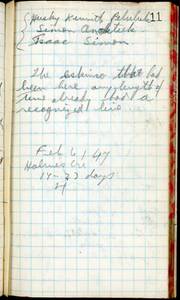 Husky Kenneth 11
Simon
Isaac Simon
The eskimo that had
been here any length of
time already had a
recognized line.
Feb 6 / 47
Holmes
14-23 days